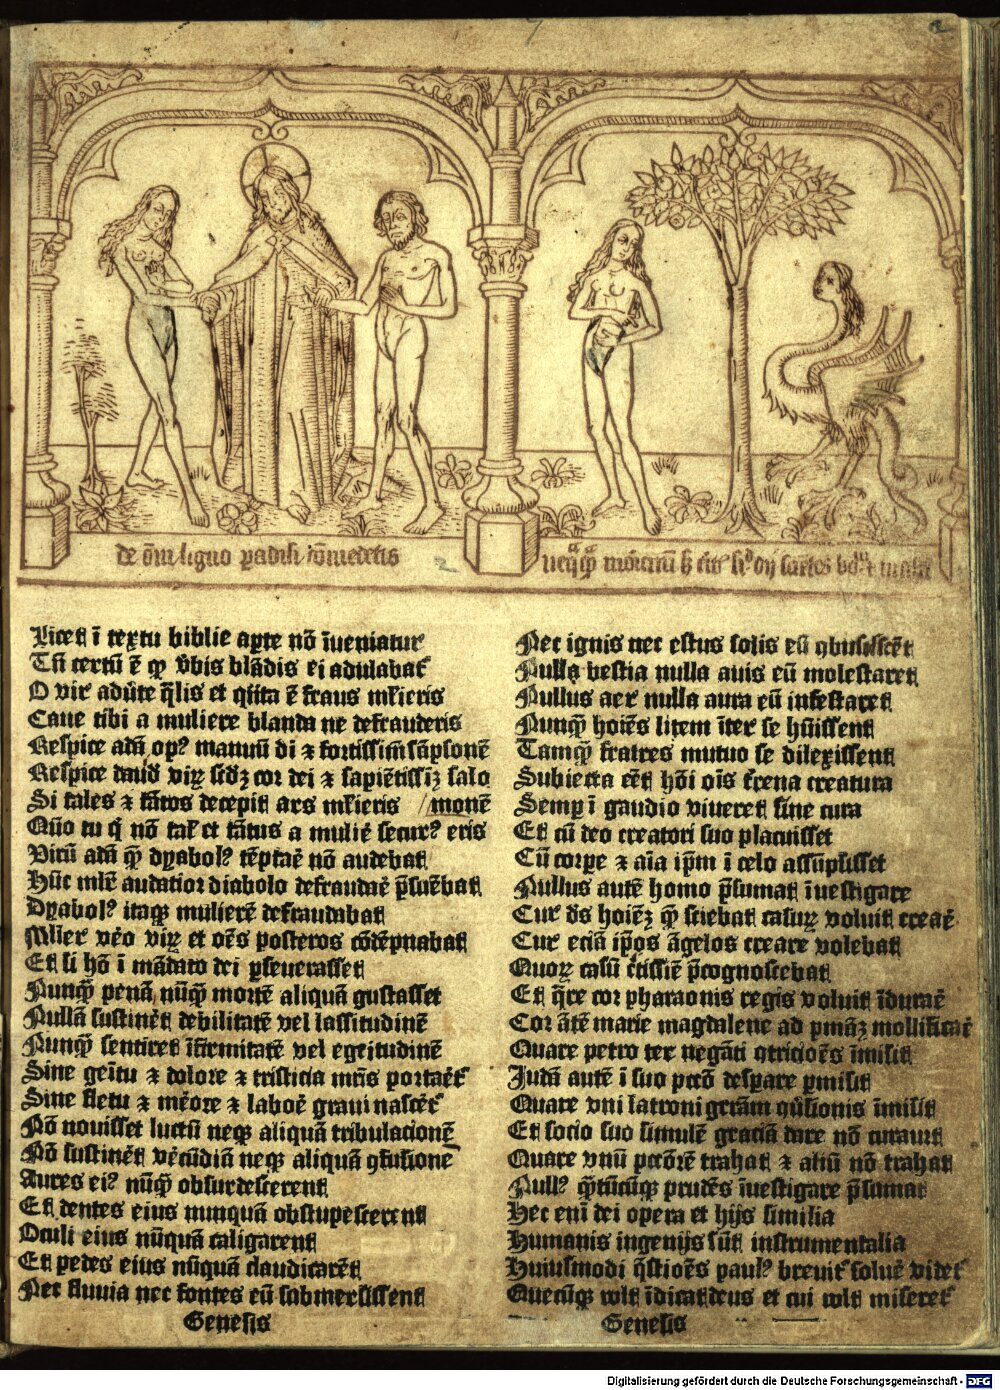 2
de o̅ni ligno p̲adisi co̅medetis
Licet i̅ textu biblie ap̲te no̅ i̅ueniatur
Tn̅ certu̅ e̅ ꝙ v̾bis bla̅dis ei adulabat᷑
O vir adu̾te q̅lis et q̅nta e̅ fraus ml̾ieris
Caue tibi a muliere blanda ne defrauderis
Respice ada̅ opꝰ manuu̅ di ⁊ fortissim̅ sa̅psone̅
Respice dauid viꝝ sc̅dꝫ cor dei ⁊ sapie̅tissi̅ꝫ salo
Si tales ⁊ ta̅tos decepit ars ml̾ieris / mone̅
Quo̅ tu q̇ no̅ tal̾ et ta̅tus a mulie̾ securꝰ eris
Viru̅ ada̅ que̅ dyabolꝰ te̅ptae̾ no̅ audebat
Hu̅c ml̾ie̅ audatior diabolo defraudae̾ p̅sue̅bat
Dyabolꝰ itaqꝫ muliere̅ defraudabat
Mulier ve̾o viꝝ et oe̅s posteros co̅de̅pnabat
Et si ho̅ i̅ ma̅dato dei p̲seuerasset
Nunqꝫ̅ pena̅ nu̅qꝫ̅ morte̅ aliqua̅ gustasset
Nulla̅ sustine̾t debilitate̅ vel lassitudine̅
Nunqꝫ̅ sentiret i̅firmitate̅ vel egritudine̅
Sine gei̅tu ⁊ dolore ⁊ tristicia mr̅is portae̾t᷑
Sine fletu ⁊ me̾ore ⁊ laboe̾ graui nasce̾t᷑
No̅ nouisset luctu̅ neqꝫ aliqua̅ tribulacione̅
No̅ sustine̾t ve̾cu̅dia̅ neqꝫ aliqua̅ ꝯfusione̅
Aures eiꝰ nu̅qꝫ̅ obsurdescerent
Et dentes eius nunqua̅ obstupescerent
Oculi eius nu̅qua̅ caligarent
Et pedes eius nu̅qua̅ claudicare̅t
Nec fluuia nec fontes eu̅ submersissent
Genesis
Nec ignis nec estus solis eu̅ ꝯbusissce̅t
Nulla bestia nulla auis eu̅ molestaret
Nullus aer nulla aura eu̅ infestaret
Nunqꝫ̅ hoi̅es litem i̅ter se hu̅issent
Tamqꝫ̅ fratres mutuo se dilexissent
Subiecta ee̅t ho̅i oi̅s t̾rena creatura
Semp̲ i̅ gaudio viueret sine cura
Et cu̅ deo creatori suo placuisset
Cu̅ corpe̲ ⁊ ai̅a ip̅m i̅ celo assu̅psisset
Nullus aute̅ homo p̅sumat i̅uestigare
Cur de̅s hoi̅eꝫ que̅ sciebat casuꝝ voluit creae̾
Cur ecia̅ ip̅os a̅gelos creare volebat
Quoꝝ casu̅ c̾tissie̅ p̅cognoscebat
Et qa̅re cor pharaonis regis voluit i̅durae̾
Cor a̅te̅ marie magdalene ad pnia̅ꝫ mollificae̾
Quare petro ter nega̅ti ꝯtricioe̅s i̅misit
Juda̅ aute̅ i̅ suo pcco̅ despare̲ pm̲isit
Quare vni latroni gr̅am qu̅sionis i̅misit
Et socio suo simule̅ gracia̅ dare no̅ curauit
Quare vnu̅ pcco̅re̅ trahat ⁊ aliu̅ no̅ trahat
Nullꝰ qꝫ̅tu̅cu̅qꝫ prude̅s i̅uestigare p̅sumat
Hec eni̅ dei opera et hijs similia
Humanis ingenijs su̅t instrumentalia
Huiusmodi q̅stioe̅s paulꝰ breuit᷑ solue̾ videt᷑
Quecu̅qꝫ vult i̅dicat deus et cui vult miseret᷑
Genesis
Digitalisierung gefördert durch die Deutsche Forschungsgemeinschaft - DFG